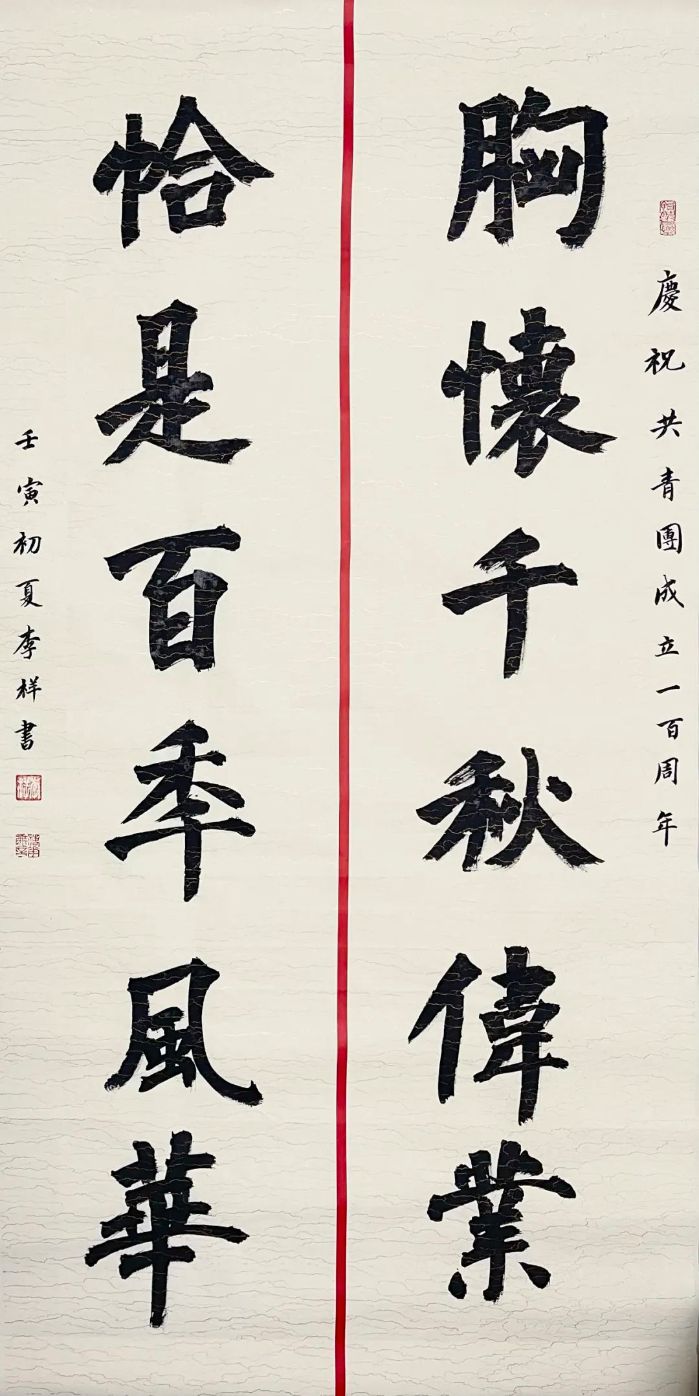 慶祝共青團成立一百周年
胸懷千秋偉業
恰是百年風華
壬寅初夏李祥書